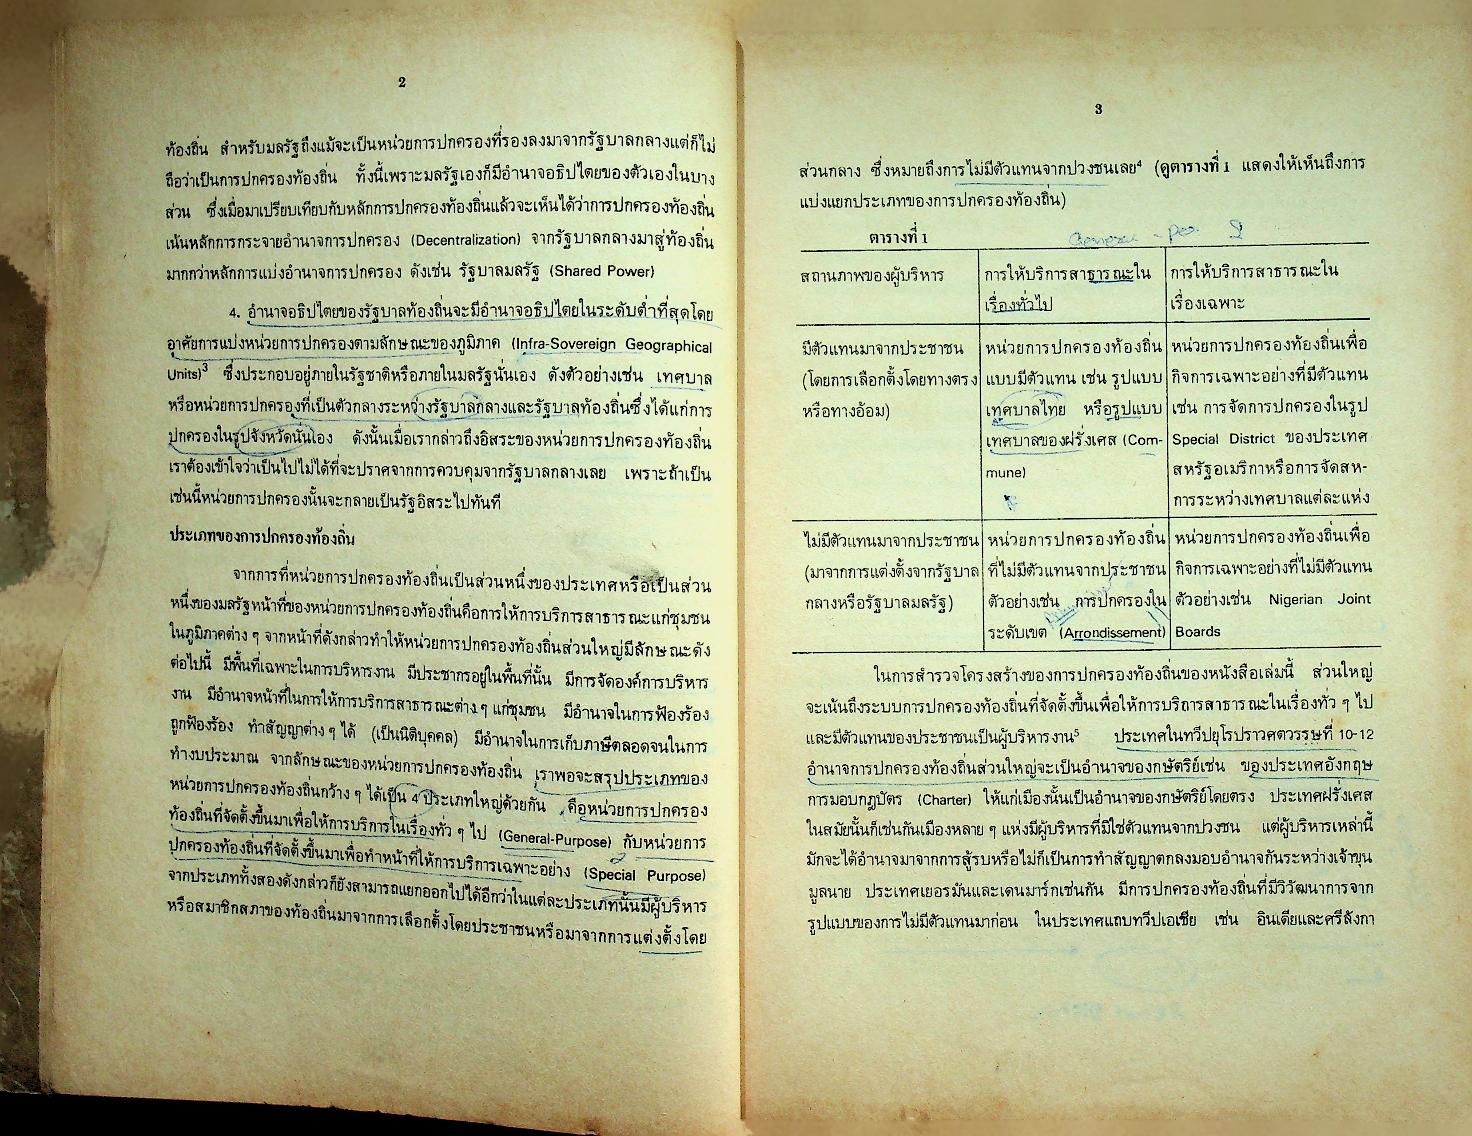 2
ท้องถิ่น สำหรับมลรัฐถึงแม้จะเป็นหน่วยการปกครองที่รองลงมาจากรัฐบาลกลางแต่ก็ไม่
ถือว่าเป็นการปกครองท้องถิ่น ทั้งนี้เพราะมลรัฐเองก็มีอำนาจอธิปไตยของตัวเองในบาง
ส่วน ซึ่งเมื่อมาเปรียบเทียบกับหลักการปกครองท้องถิ่นแล้วจะเห็นได้ว่าการปกครองท้องถิ่น
เน้นหลักการกระจายอำนาจการปกครอง (Decentralization) จากรัฐบาลกลางมาสู่ท้องถิ่น
มากกว่าหลักการแบ่งอำนาจการปกครอง ดังเช่น รัฐบาลมลรัฐ (Shared Power)
4. อำนาจอธิปไตยของรัฐบาลท้องถิ่นจะมีอำนาจอธิปไตยในระดับต่ำที่สุดโดย
อาศัยการแบ่งหน่วยการปกครองตามลักษณะของภูมิภาค (Infra-Sovereign Geographical
Units)³ ซึ่งประกอบอยู่ภายในรัฐชาติหรือภายในมลรัฐนั่นเอง ดังตัวอย่างเช่น เทศบาล
หรือหน่วยการปกครองที่เป็นตัวกลางระหว่างรัฐบาลกลางและรัฐบาลท้องถิ่นซึ่งได้แก่การ
ปกครองในรูปจังหวัดนั่นเอง ดังนั้นเมื่อเรากล่าวถึงอิสระของหน่วยการปกครองท้องถิ่น
เราต้องเข้าใจว่าเป็นไปไม่ได้ที่จะปราศจากการควบคุมจากรัฐบาลกลางเลย เพราะถ้าเป็น
เช่นนี้หน่วยการปกครองนั้นจะกลายเป็นรัฐอิสระไปทันที
ประเภทของการปกครองท้องถิ่น
จากการที่หน่วยการปกครองท้องถิ่นเป็นส่วนหนึ่งของประเทศหรือเป็นส่วน
หนึ่งของมลรัฐหน้าที่ของหน่วยการปกครองท้องถิ่นคือการให้การบริการสาธารณะแก่ชุมชน
ในภูมิภาคต่าง ๆ จากหน้าที่ดังกล่าวทำให้หน่วยการปกครองท้องถิ่นส่วนใหญ่มีลักษณะดัง
ต่อไปนี้ มีพื้นที่เฉพาะในการบริหารงาน มีประชากรอยู่ในพื้นที่นั้น มีการจัดองค์การบริหาร
งาน มีอำนาจหน้าที่ในการให้การบริการสาธารณะต่าง ๆ แก่ชุมชน มีอำนาจในการฟ้องร้อง
ถูกฟ้องร้อง ทำสัญญาต่าง ๆ ได้ (เป็นนิติบุคคล) มีอำนาจในการเก็บภาษีตลอดจนในการ
ทำงบประมาณ จากลักษณะของหน่วยการปกครองท้องถิ่น เราพอจะสรุปประเภทของ
หน่วยการปกครองท้องถิ่นกว้าง ๆ ได้เป็น 4 ประเภทใหญ่ด้วยกัน คือหน่วยการปกครอง
ท้องถิ่นที่จัดตั้งขึ้นมาเพื่อให้การบริการในเรื่องทั่ว ๆ ไป (General-Purpose) กับหน่วยการ
ปกครองท้องถิ่นที่จัดตั้งขึ้นมาเพื่อทำหน้าที่ให้การบริการเฉพาะอย่าง (Special Purpose)
จากประเภททั้งสองดังกล่าวก็ยังสามารถแยกออกไปได้อีกว่าในแต่ละประเภทนั้นมีผู้บริหาร
หรือสมาชิกสภาของท้องถิ่นมาจากการเลือกตั้งโดยประชาชนหรือมาจากการแต่งตั้งโดย
3
ส่วนกลาง ซึ่งหมายถึงการไม่มีตัวแทนจากปวงชนเลย⁴ (ดูตารางที่ 1 แสดงให้เห็นถึงการ
แบ่งแยกประเภทของการปกครองท้องถิ่น)
ตารางที่ 1
สถานภาพของผู้บริหาร
การให้บริการสาธารณะใน
เรื่องทั่วไป
การให้บริการสาธารณะใน
เรื่องเฉพาะ
มีตัวแทนมาจากประชาชน
(โดยการเลือกตั้งโดยทางตรง
หรือทางอ้อม)
หน่วยการปกครองท้องถิ่น
แบบมีตัวแทน เช่น รูปแบบ
เทศบาลไทย หรือรูปแบบ
เทศบาลของฝรั่งเศส (Com-
mune)
หน่วยการปกครองท้องถิ่นเพื่อ
กิจการเฉพาะอย่างที่มีตัวแทน
เช่น การจัดการปกครองในรูป
Special District ของประเทศ
สหรัฐอเมริกาหรือการจัดสห-
การระหว่างเทศบาลแต่ละแห่ง
ไม่มีตัวแทนมาจากประชาชน
(มาจากการแต่งตั้งจากรัฐบาล
กลางหรือรัฐบาลมลรัฐ)
หน่วยการปกครองท้องถิ่น
ที่ไม่มีตัวแทนจากประชาชน
ตัวอย่างเช่น การปกครองใน
ระดับเขต (Arrondissement)
หน่วยการปกครองท้องถิ่นเพื่อ
กิจการเฉพาะอย่างที่ไม่มีตัวแทน
ตัวอย่างเช่น Nigerian Joint
Boards
ในการสำรวจโครงสร้างของการปกครองท้องถิ่นของหนังสือเล่มนี้ ส่วนใหญ่
จะเน้นถึงระบบการปกครองท้องถิ่นที่จัดตั้งขึ้นเพื่อให้การบริการสาธารณะในเรื่องทั่ว ๆ ไป
และมีตัวแทนของประชาชนเป็นผู้บริหารงาน⁵ ประเทศในทวีปยุโรปราวศตวรรษที่ 10-12
อำนาจการปกครองท้องถิ่นส่วนใหญ่จะเป็นอำนาจของกษัตริย์เช่น ของประเทศอังกฤษ
การมอบกฎบัตร (Charter) ให้แก่เมืองนั้นเป็นอำนาจของกษัตริย์โดยตรง ประเทศฝรั่งเศส
ในสมัยนั้นก็เช่นกันเมืองหลาย ๆ แห่งมีผู้บริหารที่มิใช่ตัวแทนจากปวงชน แต่ผู้บริหารเหล่านี้
มักจะได้อำนาจมาจากการสู้รบหรือไม่ก็เป็นการทำสัญญาตกลงมอบอำนาจกันระหว่างเจ้าขุน
มูลนาย ประเทศเยอรมันและเดนมาร์กเช่นกัน มีการปกครองท้องถิ่นที่มีวิวัฒนาการจาก
รูปแบบของการไม่มีตัวแทนมาก่อน ในประเทศแถบทวีปเอเชีย เช่น อินเดียและศรีลังกา